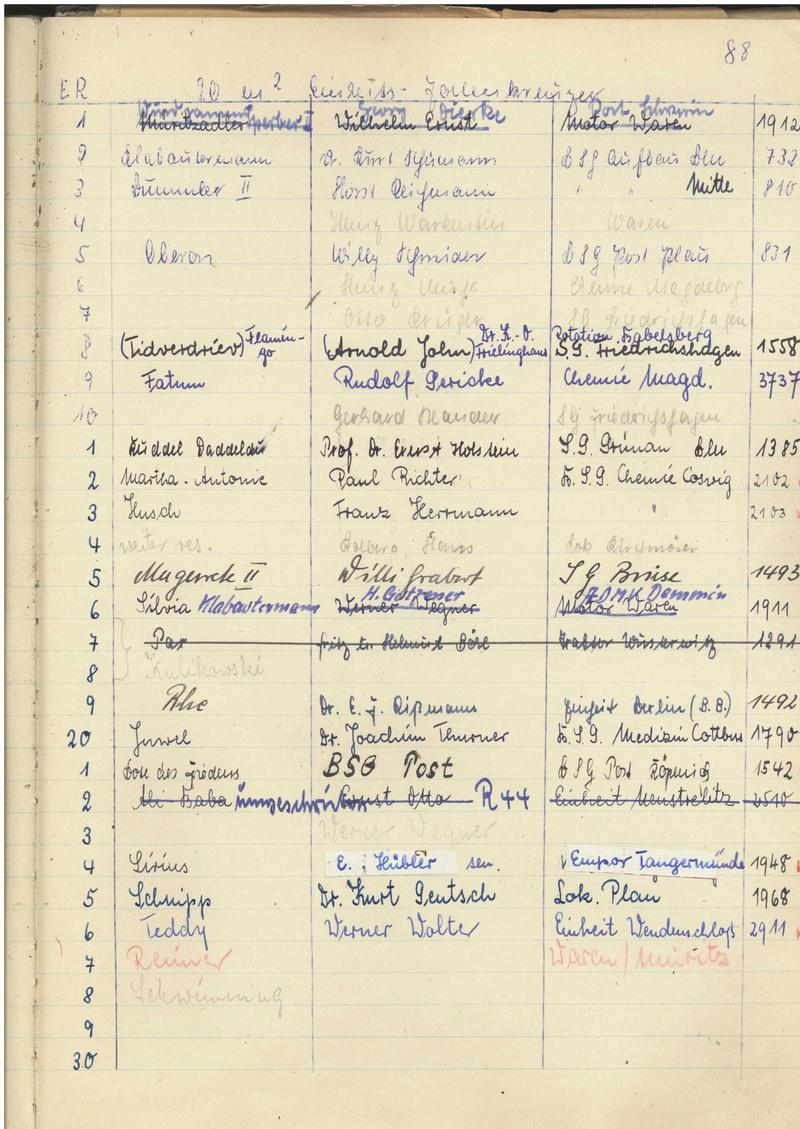 88
ER 20 m² Einheits-Jollenkreuzer
Georg Dierke Post Schwerin
1 Müritzadler Sperber I Wilhelm Ernst Motor Waren 1912
2 Klabautermann Dr. Kurt Schumann BSG Aufbau Bln 732
3 Dummler II Horst Reichmann " " Mitte 810
4 Heinz Warkentin Waren
5 Oberon Willy Schneider BSG Post Plau 831
6 Heinz Chemie Magdeburg
7 Otto Krüger SG Friedrichshagen
Flamin- Dr. K.-O. Rotation Babelsberg
8 (Tidverdriev) go (Arnold John) Frielinghaus S.G. Friedrichshagen 1558
9 Fatum Rudolf Gericke Chemie Magd. 3737
10 Gerhard Neander SG Friedrichshagen
1 Kuddel Daddeldu Prof. Dr. Ernst Holstein S.G. Grünau Bln 1385
2 Martha-Antonie Paul Richter B.S.G. Chemie Coswig 2102
3 Husch Franz Herrmann " 2103
4 weiter res. Hans Lok Kirchmöser
5 Mugerck II Willi Grabert SG Brise 1493
H. Gützener ZDMK Demmin
6 Silvia Klabautermann Werner Wegner Motor Waren 1911
7 Pax Fritz u. Helmut Böhl Traktor Wusterwitz 1291
8 Kulikowski
9 Rhe Dr. E. J. Rißmann Einheit Berlin (B.B.) 1492
20 Juwel Dr. Joachim Thurner B.S.G. Medizin Cottbus 1790
1 Bote des Friedens BSG Post BSG Post Köpenick 1542
2 Ali Baba umgeschrieben Ernst Otto R 44 Einheit Neustrelitz 2510
3 Werner Wegner
4 Sirius E. Hübler sen. Empor Tangermünde 1948
5 Schnipp Dr. Kurt Gentsch Lok. Plau 1968
6 Teddy Werner Wolter Einheit Wendenschloß 2911
7 Reimer Waren/Müritz
8 Schwimming
9
30